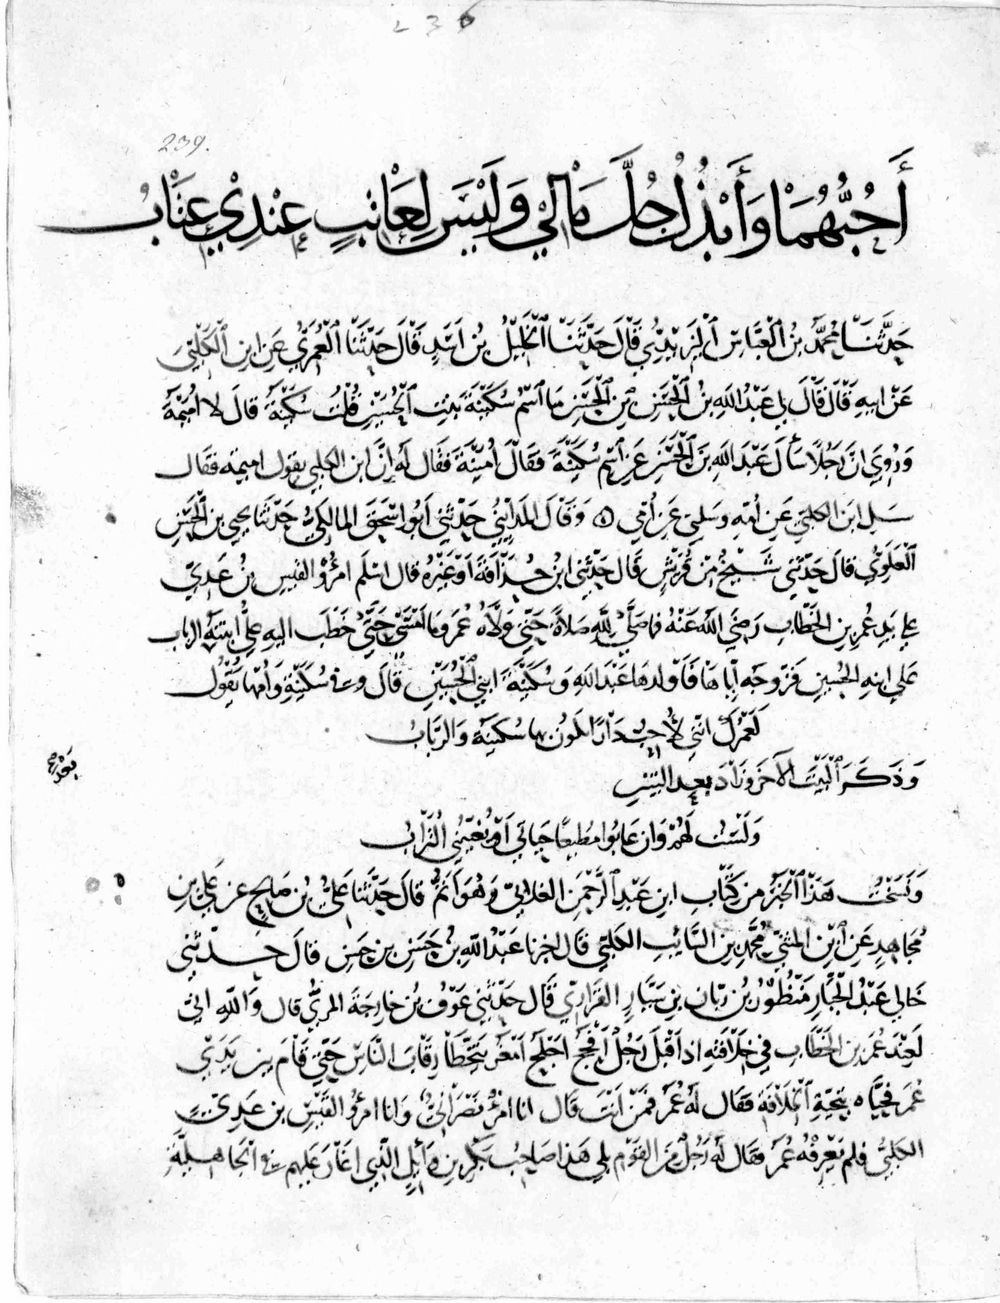 236
239.
أُحِبُّهُمَا وَأَبْذُلُ جُلَّ مَالِي وَلَيْسَ لِعَاتِبٍ عِنْدِي عِتَابُ
حَدَّثَنَا مُحَمَّدُ بْنُ الْعَبَّاسِ الْيَزِيدِيُّ قَالَ حَدَّثَنَا الْخَلِيلُ بْنُ اَسَدٍ قَالَ حَدَّثَنَا الْعُمَرِيُّ عَنِ ابْنِ الْكَلْبِيِّ
عَنْ ابِيهِ قَالَ قَالَ لِي عَبْدُ اللهِ بْنُ الْحَسَنِ بْنِ الْحَسَنِ مَا اسْمُ سُكَيْنَةَ بِنْتِ الْحُسَيْنِ فَقُلْتُ سُكَيْنَةُ قَالَ لَا اُمَيْمَةُ
وَرُوِيَ اَنَّ رَجُلًا سَأَلَ عَبْدَ اللهِ بْنَ الْحَسَنِ عَنِ اسْمِ سُكَيْنَةَ فَقَالَ اُمَيْنَةُ فَقَالَ لَهُ اِنَّ ابْنَ الكلبي يقول اميمة فقال
سَلِ ابْنَ الكلبي عَنْ اُمِّهِ وَسَلْنِي عَنْ اُمِّي ۞ وَقَالَ الْمَدَائِنِيُّ حَدَّثَنِي اَبُو اِسْحَقَ المالكيُّ حَدَّثَنَا يحيى بن الْحَسَنِ
الْعَلَوِيُّ قَالَ حَدَّثَنِي شَيْخٌ مِنْ قُرَيْشٍ قَالَ حَدَّثَنِي ابْنُ حُذَافَةَ اَوْ غَيْرُهُ قال اسْلَمَ امْرُؤُ القيس بن عَدِيٍّ
على يَدِ عُمَرَ بن الخَطَّابِ رَضِيَ اللهُ عَنْهُ فما صَلَّى لِلّهِ صَلَاةً حَتَّى وَلَّاهُ عُمَرُ وما اَمْسَى حَتَّى خَطَبَ اليهِ عليٌّ ابنتَهُ الرباب
على ابنِهِ الحُسَينِ فَزَوَّجَهُ ايَّاهَا فَاَوْلَدَهَا عَبْدَ اللهِ وَسُكَيْنَةَ ابْنَيِ الْحُسَيْنِ قَالَ وفى سُكَيْنَةِ وَاُمِّهَا يَقُولُ
لَعَمْرُكَ انَّنِي لَأُحِبُّ دَارًا تكونُ بها سُكَيْنَةُ وَالرَّبَابُ
وَذَكَرَ الْبَيْتَ الآخَرَ وَزَادَ بعد البَيْتَيْنِ
وَلَسْتُ لَهُمْ وَان عابُوا مُطيعًا حَيَاتِي اَوْ يُغَيِّبَنِي التُّرَابُ
وَنَسَخْتُ هَذَا الْخَبَرَ مِنْ كِتَابِ ابي عَبْدِ الرَّحْمَنِ الغلابيِّ وَهُوَ اَتَمُّ قال حَدَّثَنَا عَلِيُّ بْنُ صَالِحٍ عَنْ عَلِيِّ بْنِ
مُجَاهِدٍ عَنْ ابي المثنى مُحَمَّدِ بن السَّائِبِ الكلبيّ قال اخبرنا عَبْدُ اللهِ بْنُ حَسَنِ بْنِ حَسَنٍ قَالَ حَدَّثَنِي
خَالِي عَبْدُ الْجَبَّارِ بن مَنْظُورِ بن زبَّانَ بن سَيَّارٍ الفَزَارِيُّ قَالَ حَدَّثَنِي عَوْفُ بن خارِجَةَ المرِّيُّ قال وَاللهِ انِّى
لَعِنْدَ عُمَرَ بن الخَطَّابِ فِي خِلَافَتِهِ اذ اَقْبَلَ رَجُلٌ اَفْحَجُ اَجْلَحُ اَمْعَرُ يَتَخَطَّا رِقَابَ النَّاسِ حَتَّى قَامَ بين يَدَيْ
عُمَرَ فَحَيَّاهُ بِتَحِيَّةِ الْخِلَافَةِ فَقَالَ لَهُ عُمَرُ فَمَنْ اَنْتَ قَالَ انا امْرُؤٌ نَصْرَانِيٌّ وَانَا امرُؤُ القَيْسِ بن عَدِيٍّ
الكَلْبِيُّ فلم يَعْرِفْهُ عُمَرُ فقال لَهُ رَجُلٌ مِنَ القَوْمِ بلى هَذَا صَاحِبُ بَكْرِ بن وَائِلٍ الَّذِي اغَارَ عَلَيهم فى الْجَاهِلِيَّةِ